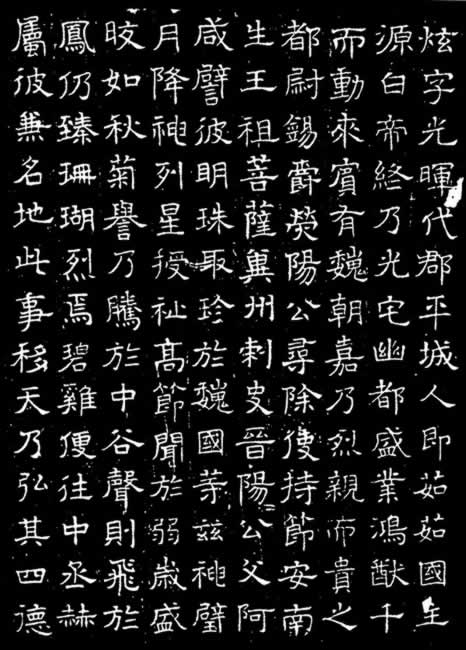 炫字光暉代郡平城人即茹茹國主
源白帝終乃光宅幽都盛業鴻猷千
而動來賓有魏朝嘉乃烈親而貴之
都尉錫爵熒陽公尋除使持節安南
生王祖菩薩兾州刺史晉陽公父阿
咸譬彼明珠取珍於魏國等茲神璧
月降神列星授祉高節聞於弱歲盛
晈如秋菊譽乃騰於中谷聲則飛於
鳳仍臻珊瑚烈焉碧雞便往中丞赫
屬彼兼名地此事移天乃弘其四德